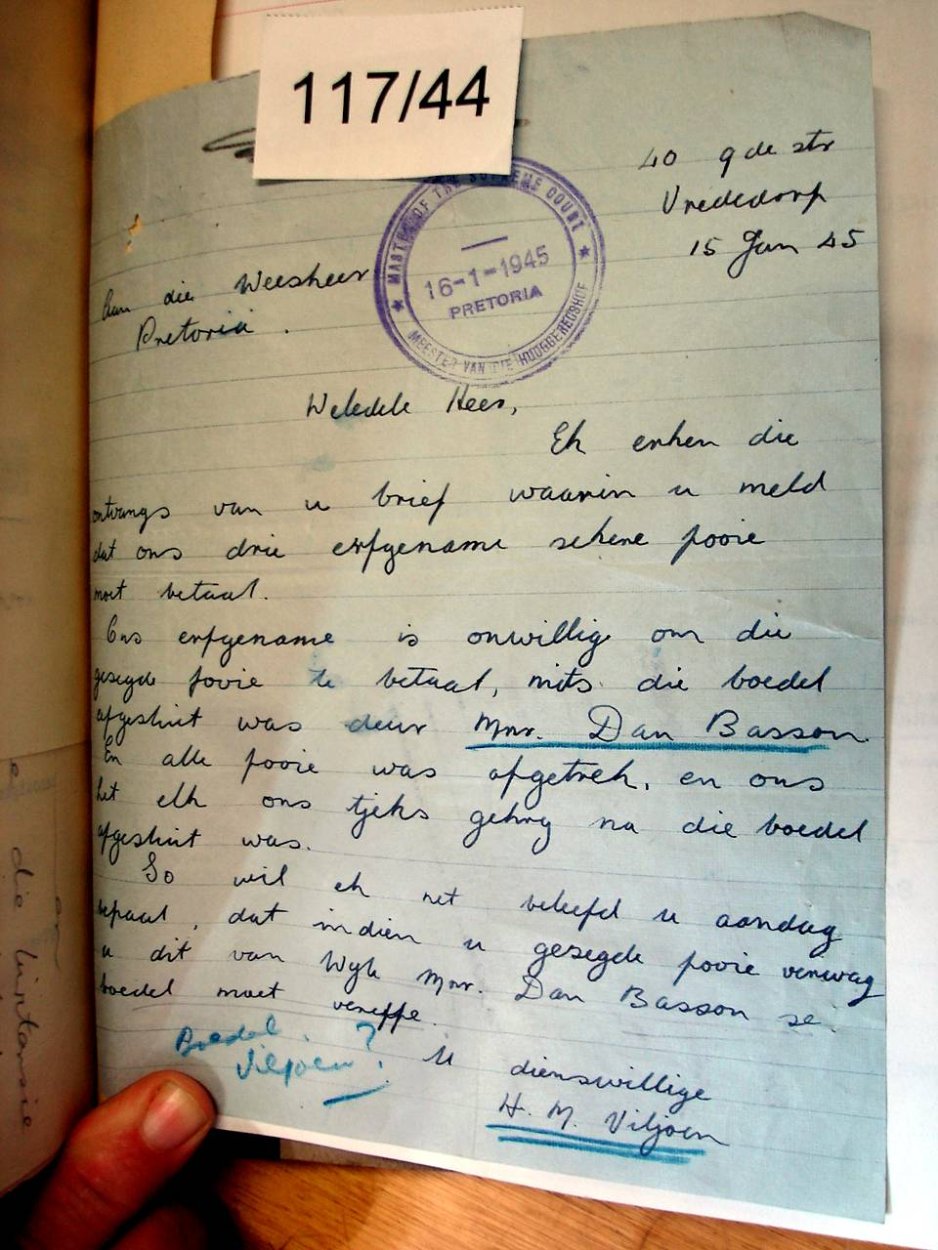 117/44
40 9de str
Vrededorp
15 Jan 45
MASTER OF THE SUPREME COURT
16-1-1945
PRETORIA
MEESTER VAN DIE HOOGGEREGSHOF
Aan die Weesheer
Pretoria.
Weledele Heer,
Ek erken die
ontvangs van u brief waarin u meld
dat ons drie erfgename sekere fooie
moet betaal.
Ons erfgename is onwillig om die
gesegde fooie te betaal, mits die boedel
afgesluit was deur Mnr. Dan Basson.
En alle fooie was afgetrek, en ons
het elk ons tjeks gekry na die boedel
afgesluit was.
So wil ek net beleefd u aandag
bepaal, dat indien u gesegde fooie verwag
u dit van Wyle Mnr. Dan Basson se
boedel moet vereffe.
U dienswillige
H. M. Viljoen
Boedel
Viljoen?
die